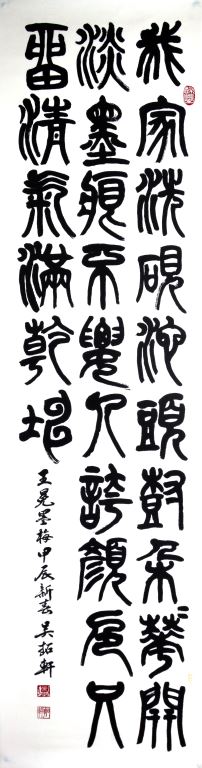 我家洗硯池頭樹朵〻華開
淡墨痕不要人誇顏色只
留清氣滿乾坤
王冕墨梅甲辰新春吳軒